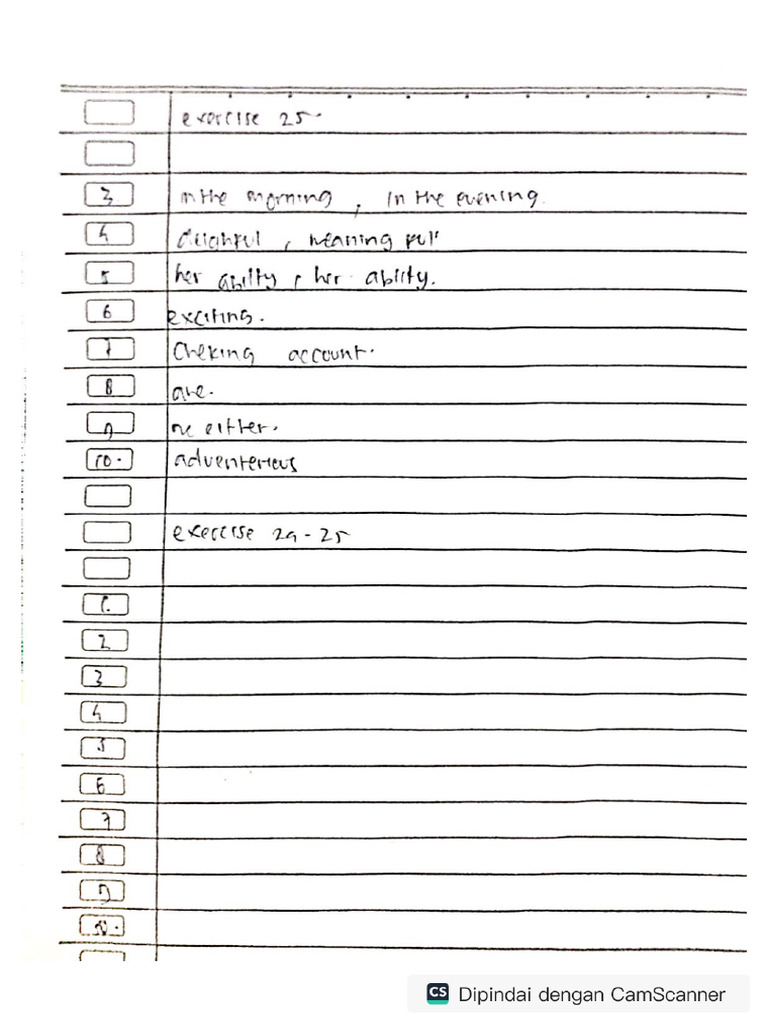 exercise 25.
3 in the morning, in the evening.
4 delighful, meaning full
5 her abilty, her ability.
6 exciting.
7 Cheking account.
8 are.
9 neither.
10. adventerious
exercise 24-25
1.
2
3
4
5
6
7
8
9
10.
CS Dipindai dengan CamScanner